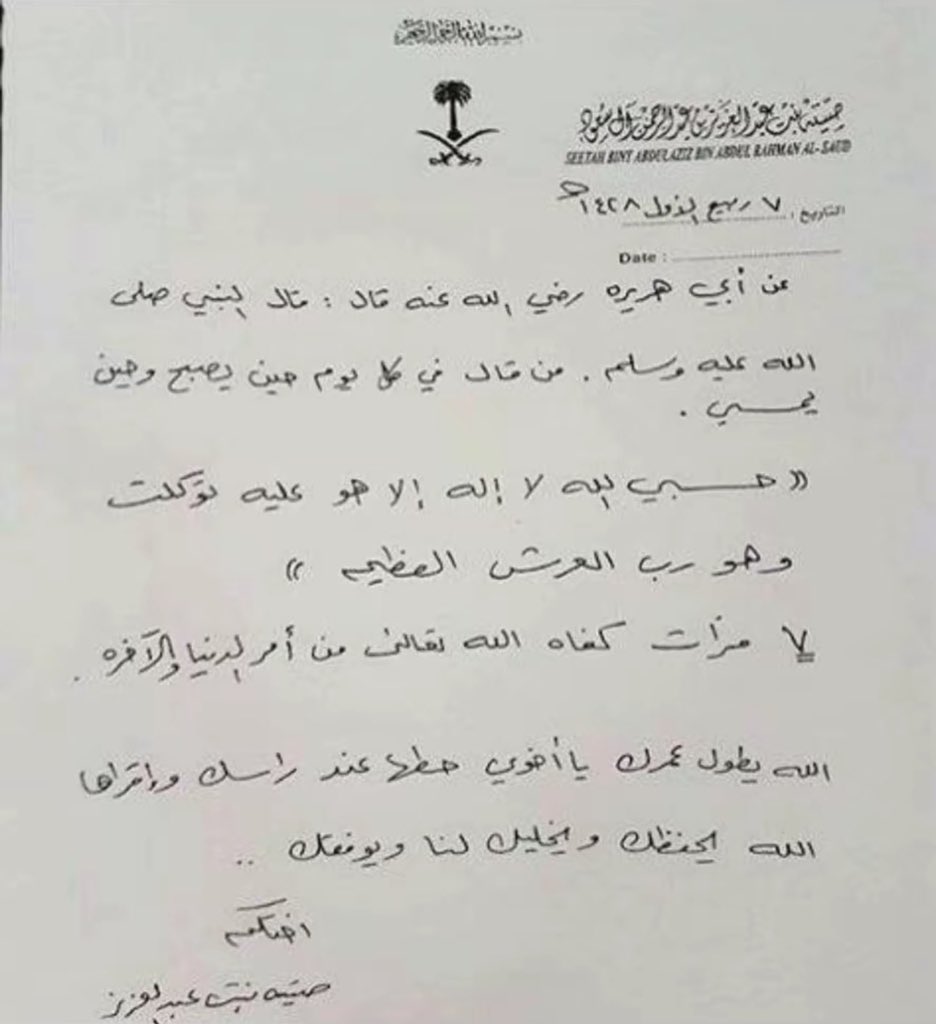 بسم الله الرحمن الرحيم
صيته بنت عبد العزيز بن عبد الرحمن آل سعود
SEETAH BINT ABDULAZIZ BIN ABDUL RAHMAN AL-SAUD
التاريخ : ٧ ربيع الأول ١٤٢٨هـ
Date :
عن أبي هريره رضي الله عنه قال : قال النبي صلى
الله عليه وسلم . من قال في كل يوم حين يصبح وحين
يمسي .
(( حسبي الله لا إله إلا هو عليه توكلت
وهو رب العرش العظيم ))
٧ مرّات كفاه الله تعالى من أمر الدنيا والآخره .
الله يطول عمرك يا أخوي حطها عند راسك وإقراها
الله يحفظك ويخليك لنا ويوفقك ..
اختكم
صيته بنت عبدالعزيز